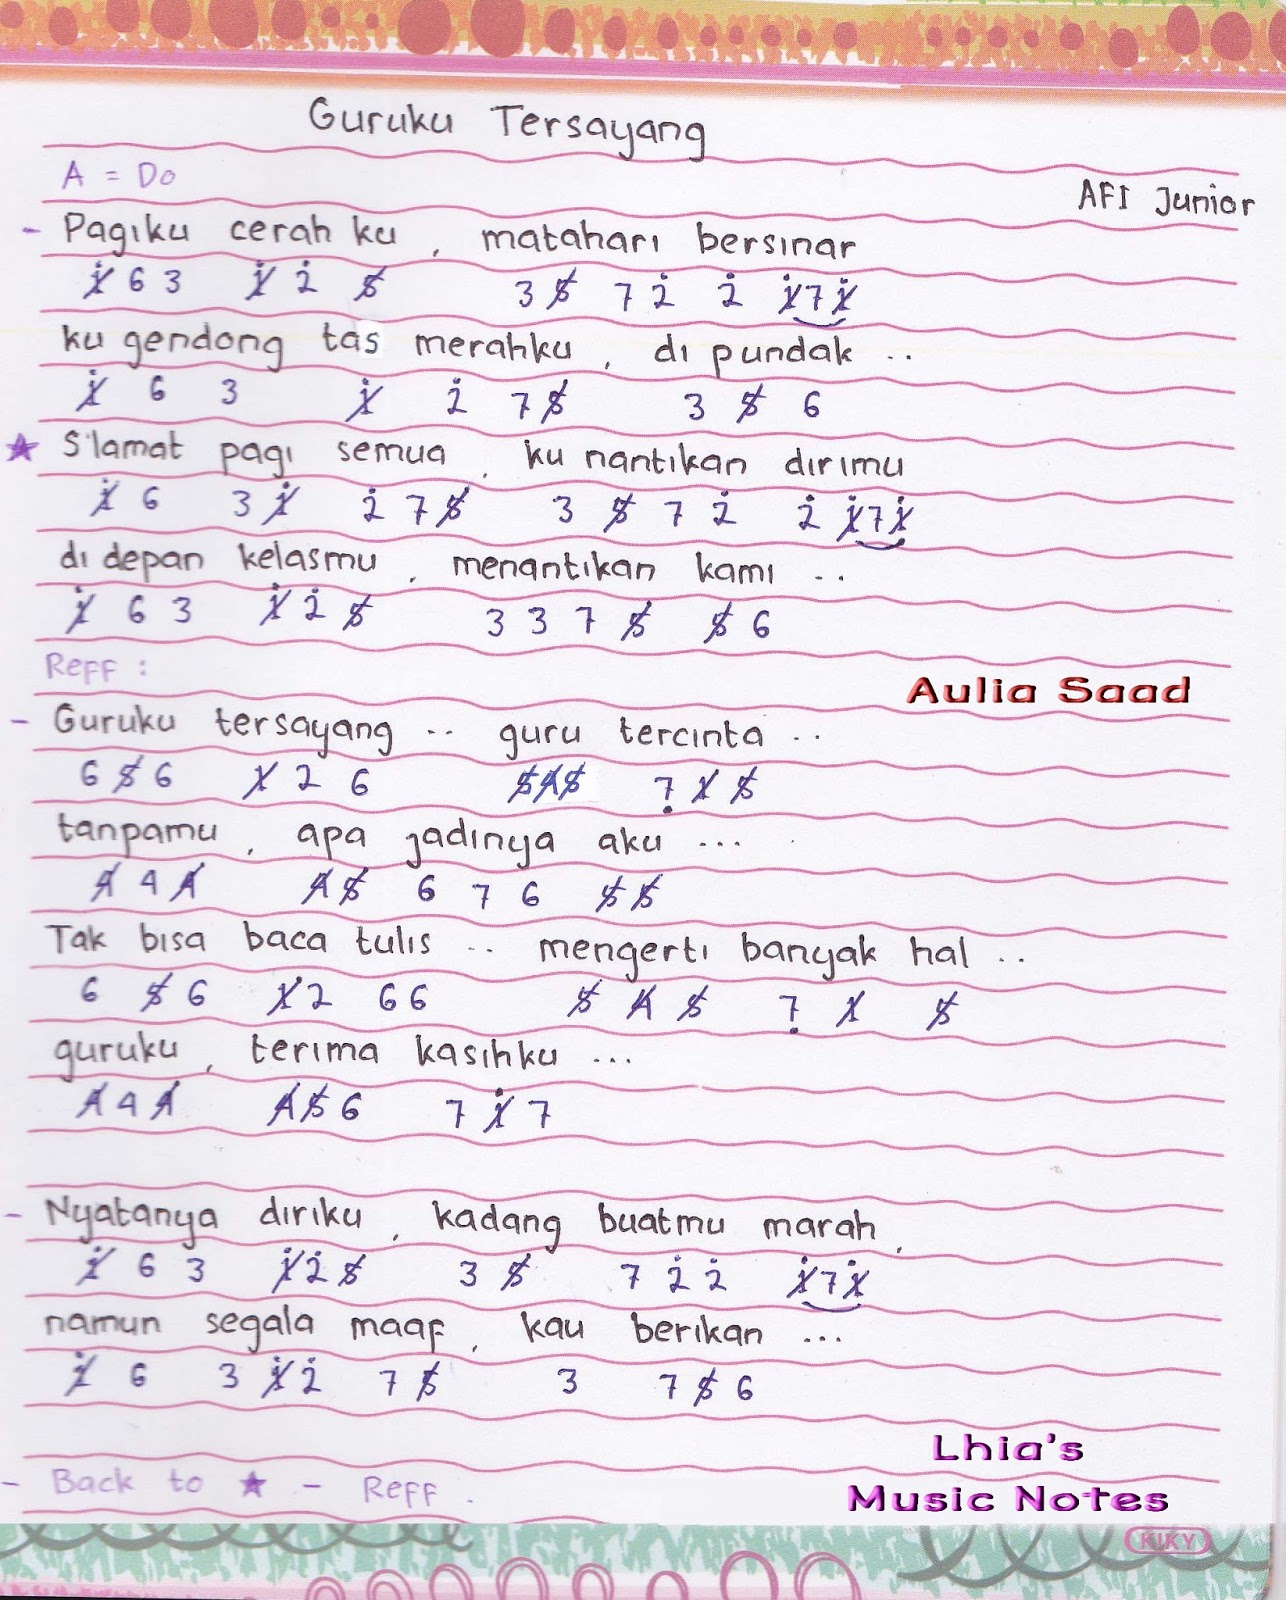 Guruku Tersayang
A = Do
AFI Junior
- Pagiku cerah ku , matahari bersinar
1̸̇ 6 3 1̸̇ 2̇ 5̸ 3 5̸ 7 2̇ 2̇ 1̸̇ 7 1̸̇
ku gendong tas merahku , di pundak ..
1̸̇ 6 3 1̸̇ 2̇ 7 5̸ 3 5̸ 6
★ S'lamat pagi semua , ku nantikan dirimu
1̸̇ 6 3 1̸̇ 2̇ 7 5̸ 3 5̸ 7 2̇ 2̇ 1̸̇ 7 1̸̇
di depan kelasmu , menantikan kami ..
1̸̇ 6 3 1̸̇ 2̇ 5̸ 3 3 7 5̸ 5̸ 6
Reff :
Aulia Saad
- Guruku tersayang .. guru tercinta ..
6 5̸ 6 1̸ 2 6 5̸ 4̸ 5̸ 7̣ 1̸ 5̸
tanpamu , apa jadinya aku ...
4̸ 4 4̸ 4̸ 5̸ 6 7 6 5̸ 5̸
Tak bisa baca tulis .. mengerti banyak hal ..
6 5̸ 6 1̸ 2 6 6 5̸ 4̸ 5̸ 7̣ 1̸ 5̸
guruku , terima kasihku ...
4̸ 4 4̸ 4̸ 5̸ 6 7 1̸̇ 7
- Nyatanya diriku , kadang buatmu marah ,
1̸̇ 6 3 1̸̇ 2̇ 5̸ 3 5̸ 7 2̇ 2̇ 1̸̇ 7 1̸̇
namun segala maaf , kau berikan ...
1̸̇ 6 3 1̸̇ 2̇ 7 5̸ 3 7 5̸ 6
Lhia's
- Back to ★ - Reff .
Music Notes
KIKY